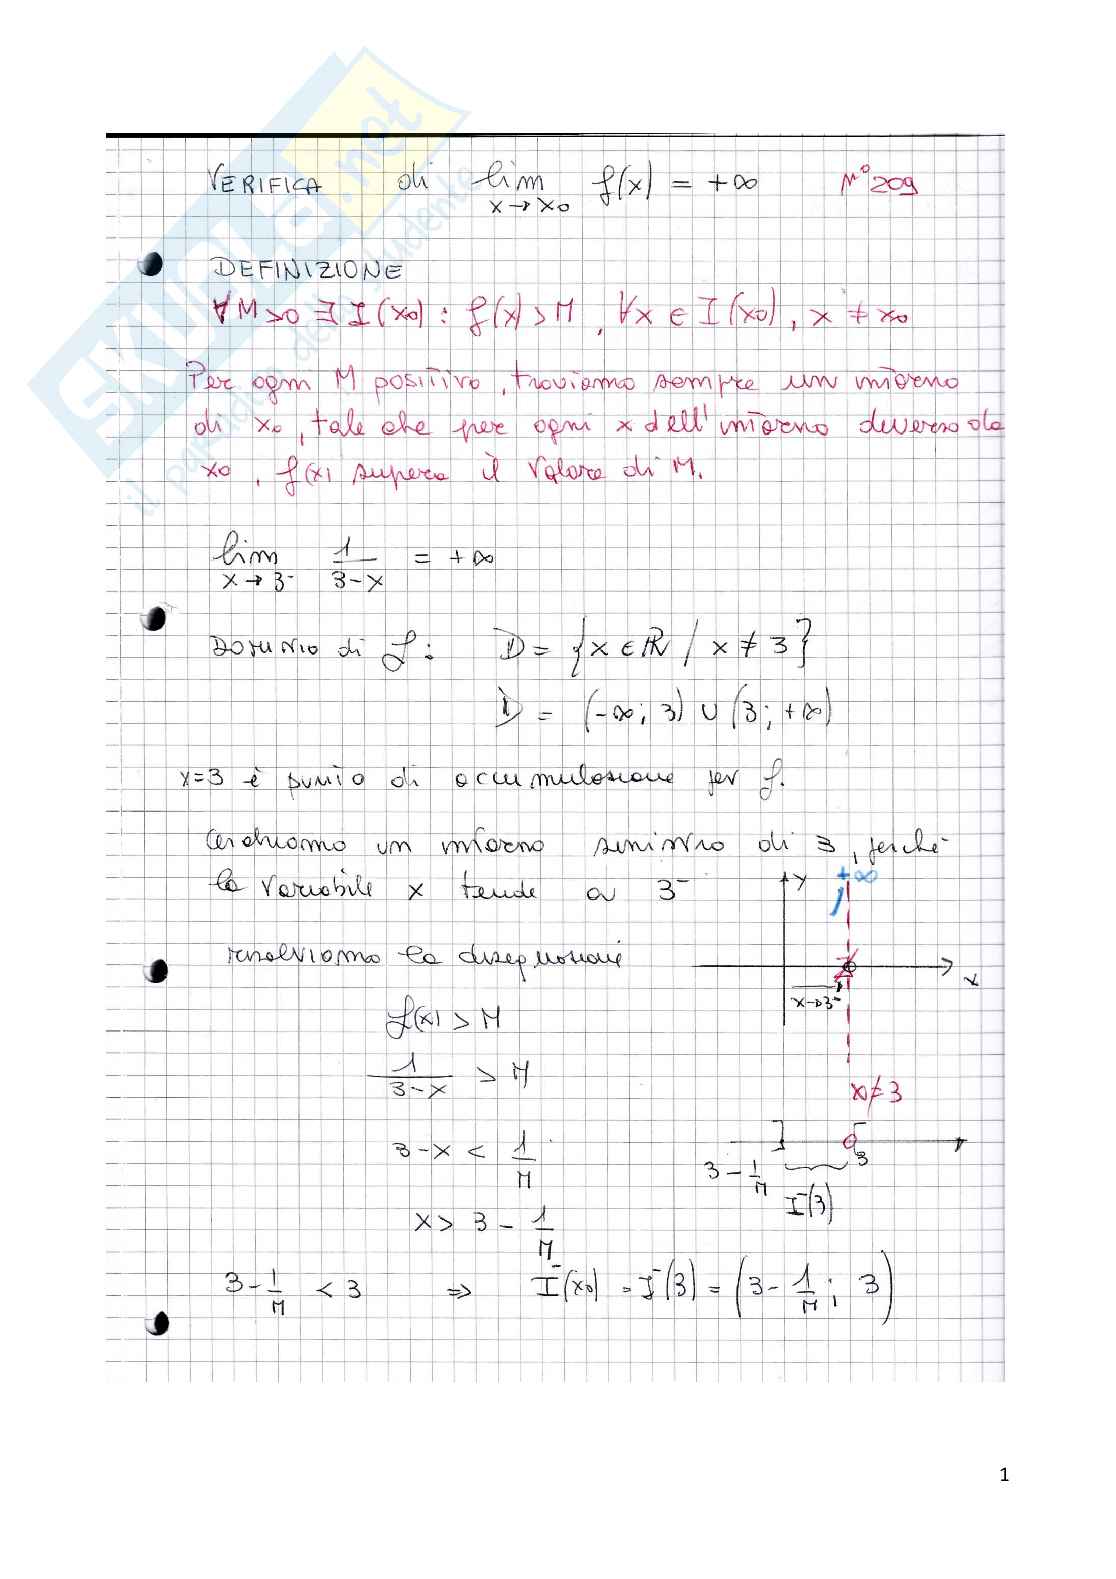 SKUOLA.net
il paradiso dello studente
VERIFICA di lim x→x₀ f(x) = +∞ n° 209
DEFINIZIONE
∀M>0 ∃ I(x₀) : f(x) > M, ∀x ∈ I(x₀), x ≠ x₀
Per ogni M positivo, troviamo sempre un intorno
di x₀, tale che per ogni x dell'intorno diverso da
x₀, f(x) supera il valore di M.
lim x→3⁻ 1/(3-x) = +∞
Dominio di f: D = {x ∈ ℝ / x ≠ 3}
D = (-∞; 3) ∪ (3; +∞)
x=3 è punto di accumulazione per f.
Cerchiamo un intorno sinistro di 3, perché
la variabile x tende a 3⁻
+∞
y
risolviamo la disequazione
x
x→3⁻
f(x) > M
1/(3-x) > M
x≠3
3-x < 1/M
3 - 1/M
3
I⁻(3)
x > 3 - 1/M
3 - 1/M < 3 ⇒ I⁻(x₀) = I⁻(3) = (3 - 1/M; 3)
1